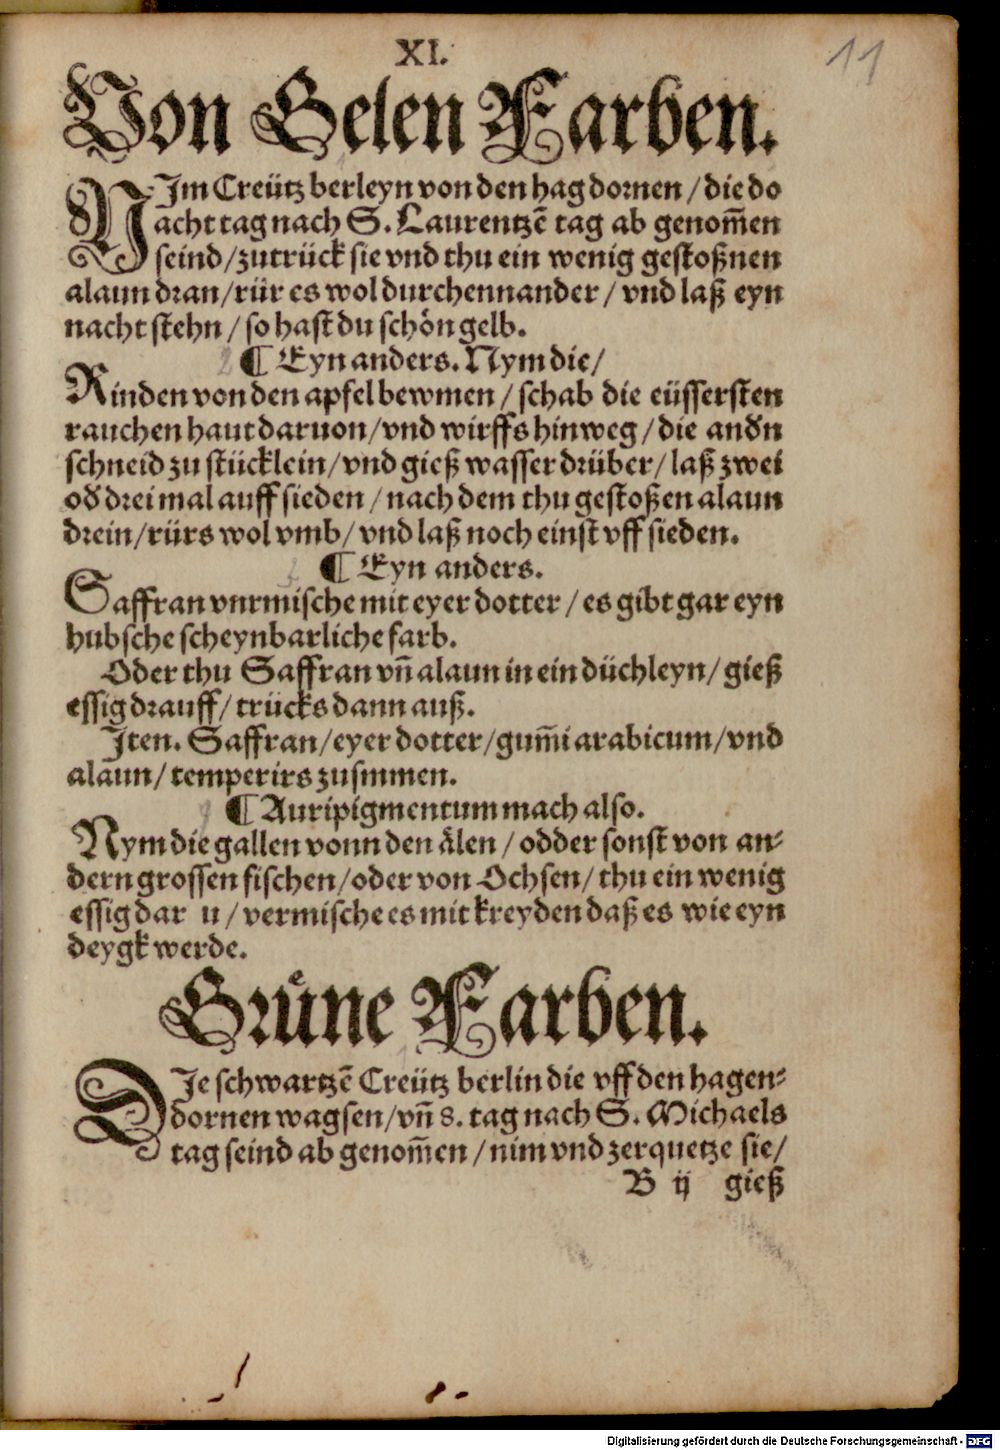 XI.
11
Von Gelen Farben.
NJm Creütz berleyn von den hag dornen / die do
acht tag nach S. Laurentzē tag ab genom̄en
seind / zutrück sie vnd thu ein wenig gestoßnen
alaun dran / rür es wol durchennander / vnd laß eyn
nacht stehn / so hast du schön gelb.
2 ¶ Eyn anders. Nym die /
Rinden von den apfel bewmen / schab die eüssersten
rauchen haut daruon / vnd wirffs hinweg / die andn
schneid zu stücklein / vnd gieß wasser drüber / laß zwei
od drei mal auff sieden / nach dem thu gestoßen alaun
drein / rürs wol vmb / vnd laß noch einst vff sieden.
3 ¶ Eyn anders.
Saffran vnrmische mit eyer dotter / es gibt gar eyn
hubsche scheynbarliche farb.
Oder thu Saffran vn̄ alaun in ein düchleyn / gieß
essig drauff / trücks dann auß.
Jten. Saffran / eyer dotter / gum̄i arabicum / vnd
alaun / temperirs zusmmen.
¶ Auripigmentum mach also.
Nym die gallen vonn den älen / odder sonst von an⸗
dern grossen fischen / oder von Ochsen / thu ein wenig
essig dar u / vermische es mit kreyden daß es wie eyn
deygk werde.
Grüne Farben.
DJe schwartzē Creütz berlin die vff den hagen⸗
dornen wagsen / vn̄ 8. tag nach S. Michaels
tag seind ab genom̄en / nim vnd zerquetze sie /
B ij gieß
Digitalisierung gefördert durch die Deutsche Forschungsgemeinschaft - DFG